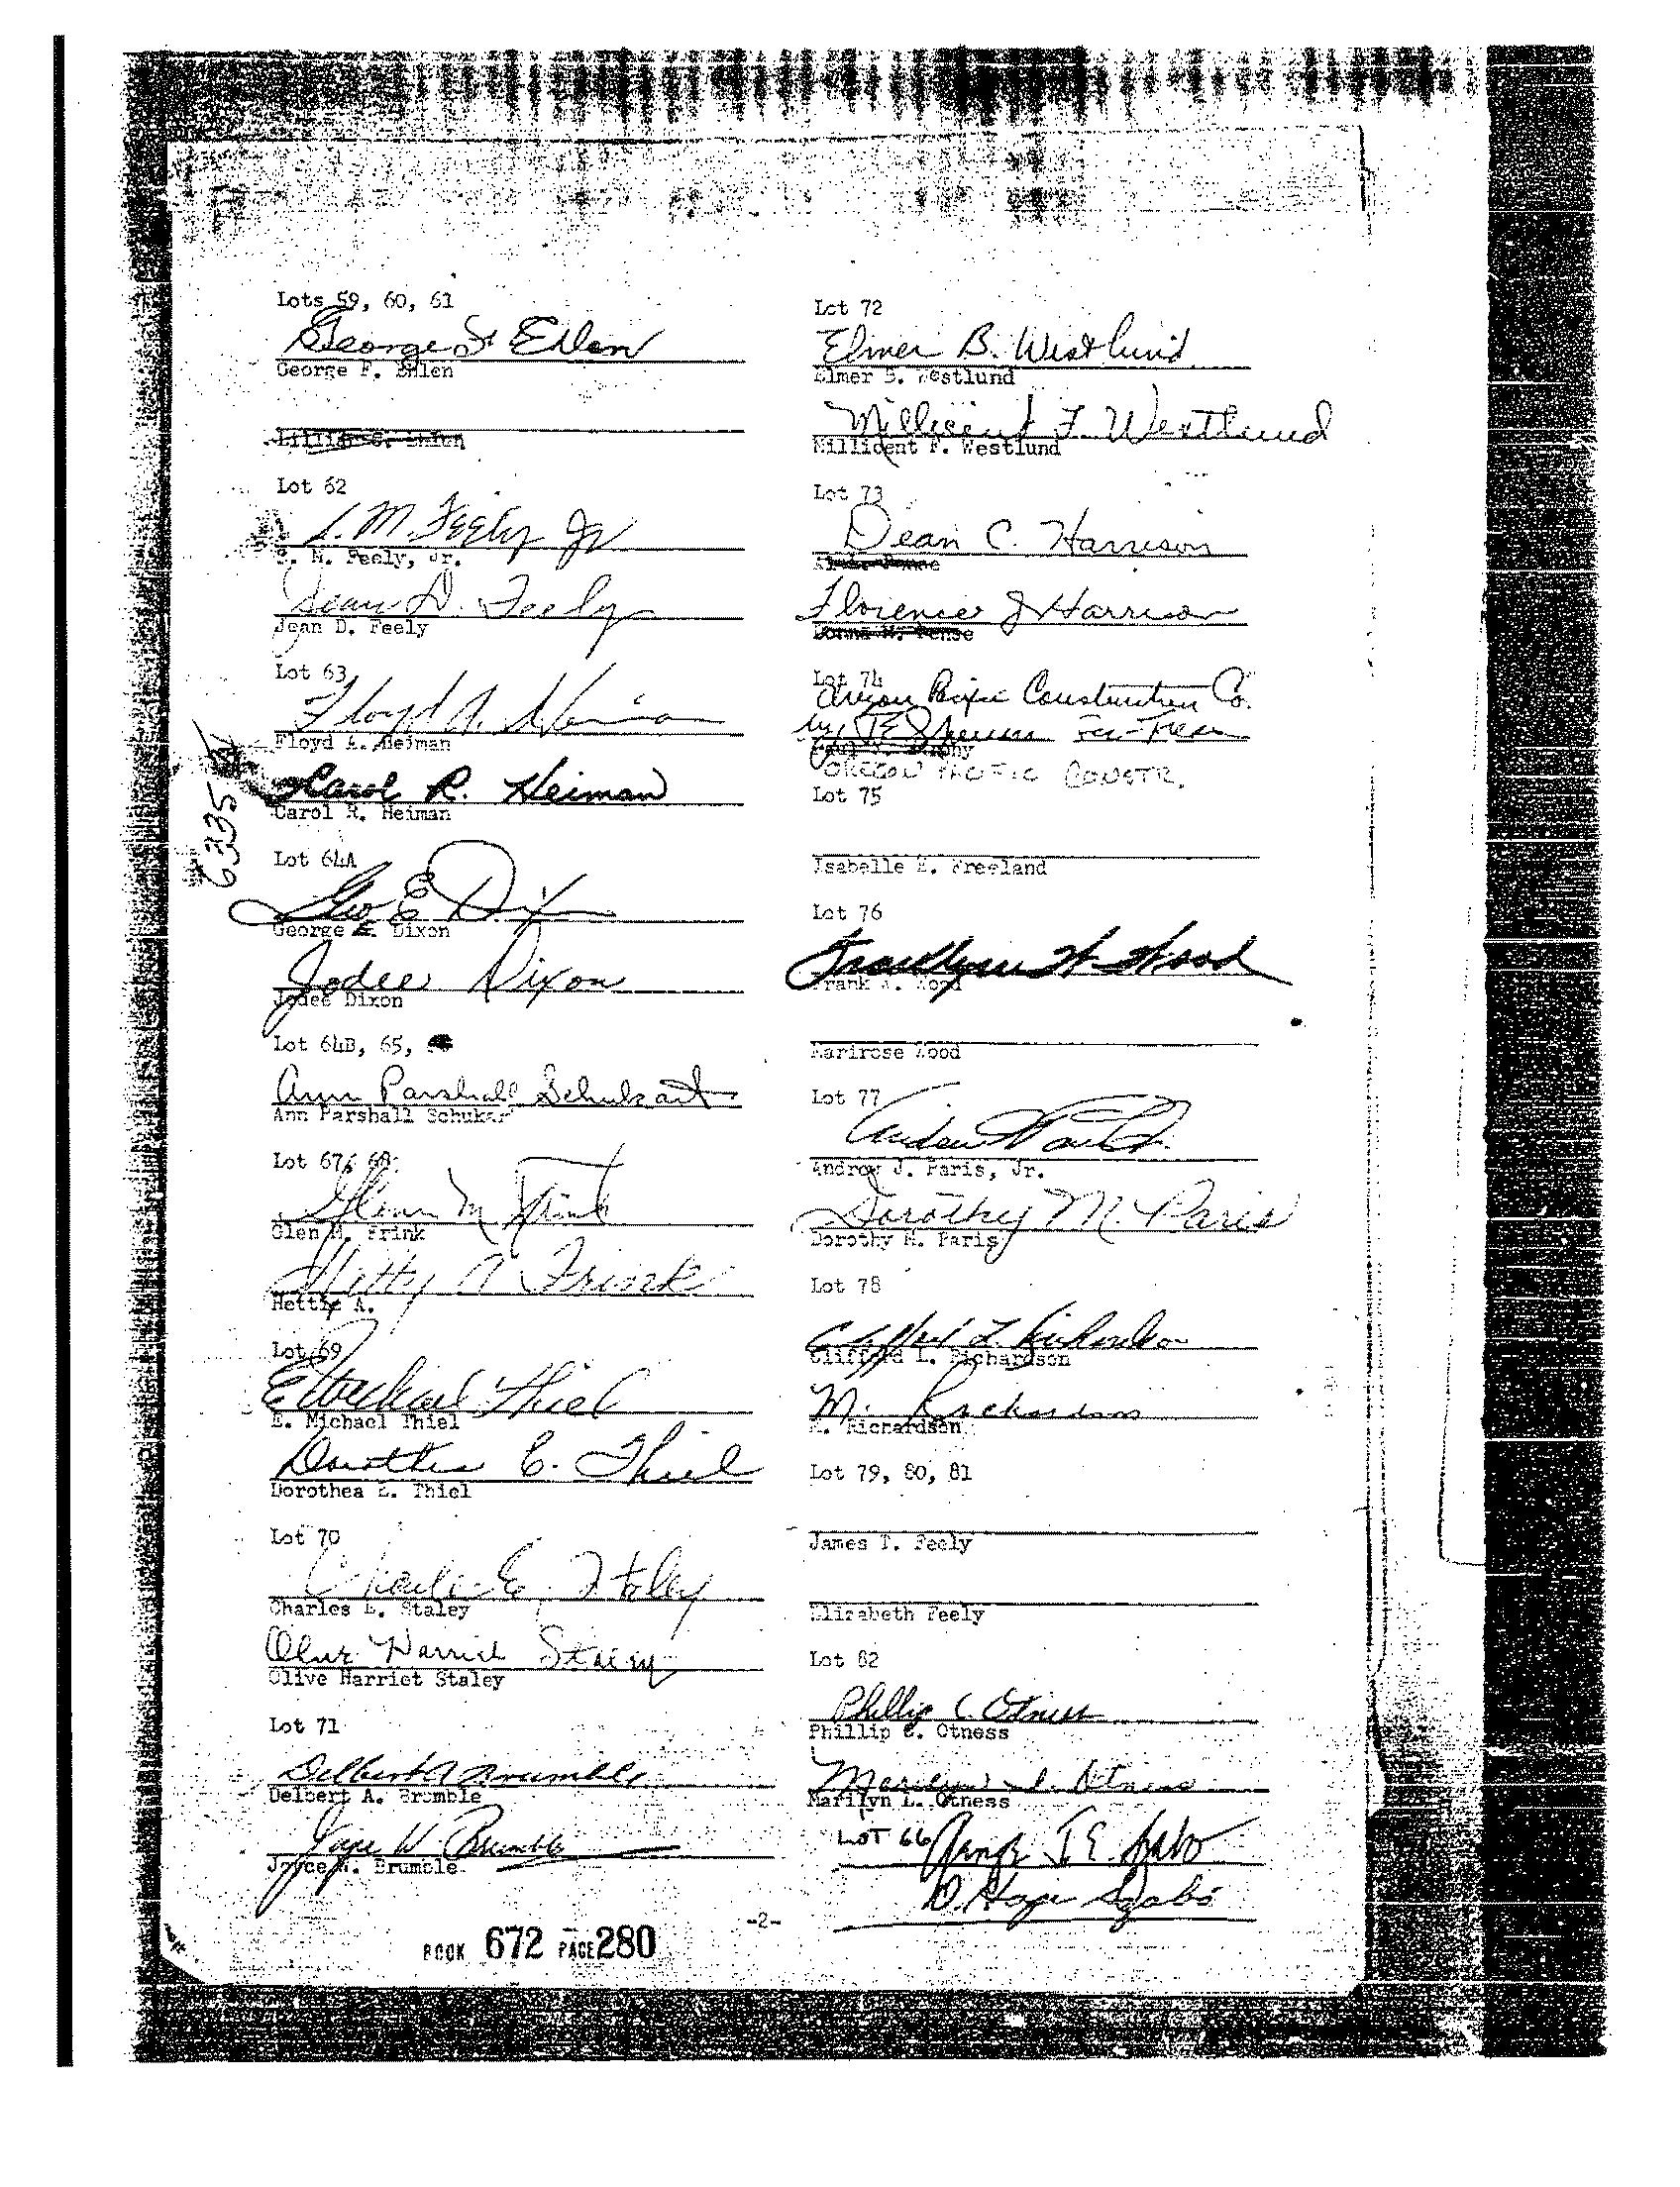 Lots 59, 60, 61
George F Ehlen
George F. Ehlen
Lot 62
L. M. Feely Jr
M. Feely, Jr.
Jean D. Feely
Jean D. Feely
Lot 63
Floyd A. Heiman
Floyd A. Heiman
Carol R. Heiman
Carol R. Heiman
Lot 64A
Geo E Dixon
George E. Dixon
Jodee Dixon
Jodee Dixon
Lot 64B, 65,
Ann Parshall Schukart
Ann Parshall Schukar
Lot 67& 68
Glenn M Frink
Glen M. Frink
Hetty A Frink
Hettie A.
Lot 69
E Michael Thiel
E. Michael Thiel
Dorothea E. Thiel
Dorothea E. Thiel
Lot 70
Charles E. Staley
Charles E. Staley
Olive Harriet Staley
Olive Harriet Staley
Lot 71
Delbert A Brumble
Delbert A. Brumble
Joyce W. Brumble
Joyce W. Brumble
6335
Lot 72
Elmer B. Westlund
Elmer B. Westlund
Millicent F. Westlund
Millicent F. Westlund
Lot 73
Dean C. Harrison
Florence J Harrison
Donna M. Pense
Lot 74
Oregon Pacific Construction Co.
OREGON PACIFIC CONSTR.
Lot 75
Isabelle E. Freeland
Lot 76
Wood
Frank W. Wood
Marirose Wood
Lot 77
Andrew J. Paris, Jr.
Dorothy M. Paris
Dorothy M. Paris
Lot 78
Clifford L. Richardson
Clifford L. Richardson
M. Richardson
M. Richardson
Lot 79, 80, 81
James T. Feely
Elizabeth Feely
Lot 82
Phillip C. Otness
Phillip C. Otness
Marilyn L. Otness
Marilyn L. Otness
LOT 66
D. Hope Szabo
-2-
BOOK 672 PAGE 280